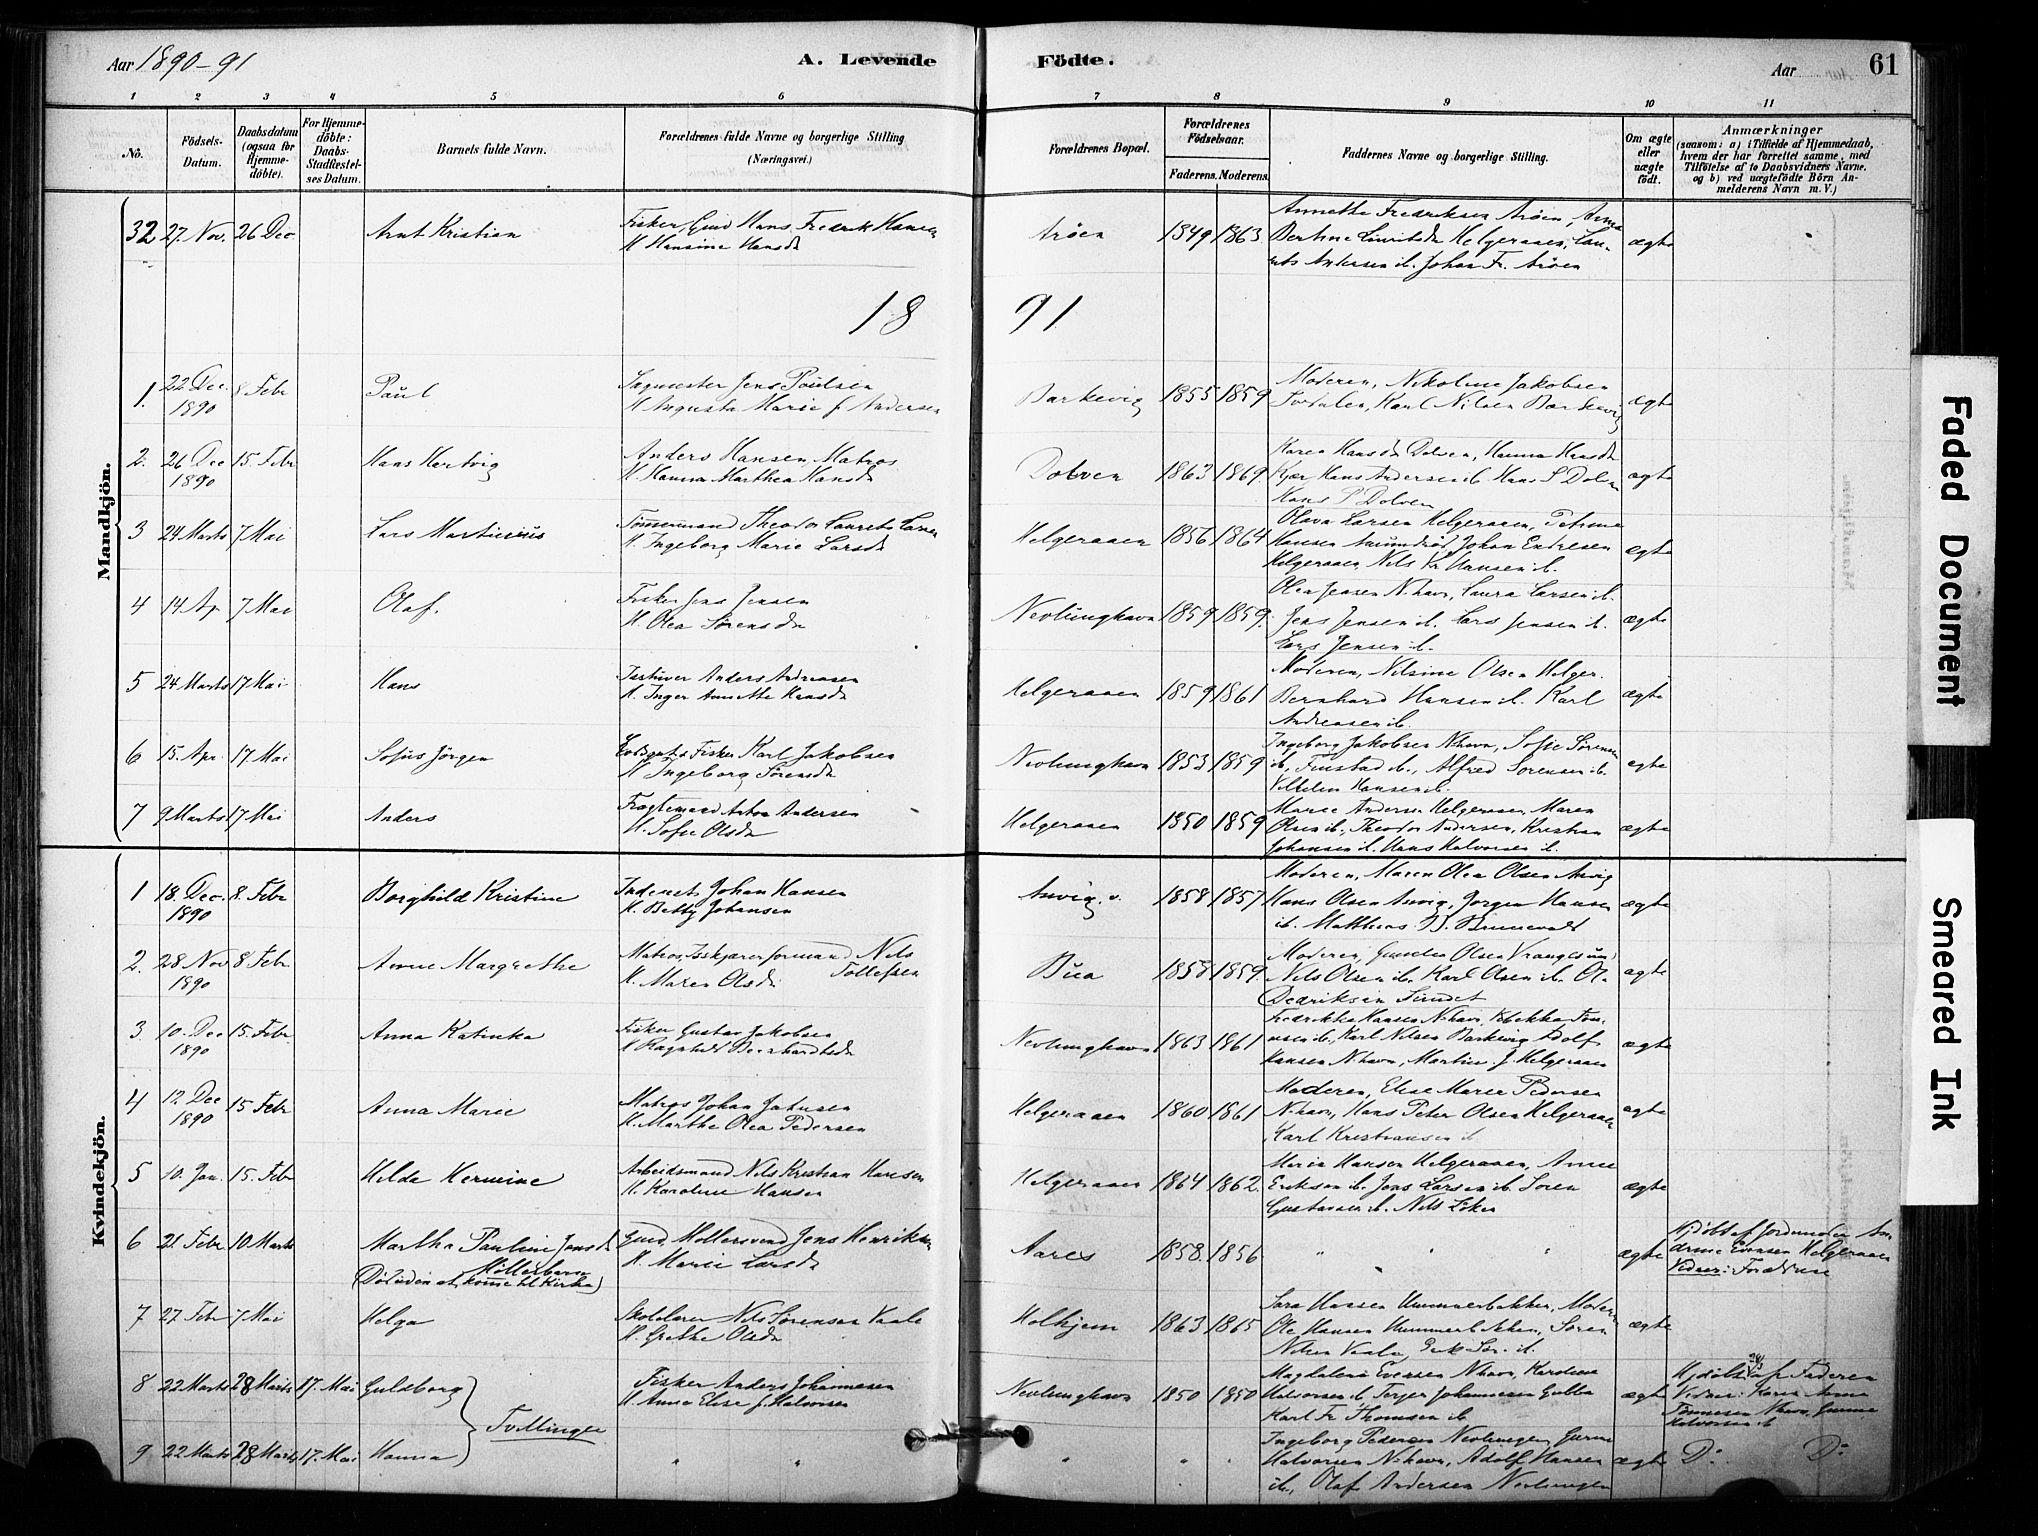 Aar 1890-91
A. Levende
Födte.
Aar
61
1 2 3 4 5 6 7 8 9 10 11
No.
Födsels-
Datum.
Daabsdatum
(ogsaa for
Hjemme-
döbte).
For Hjemme-
döbte:
Daabs-
Stadfæstel-
ses Datum.
Barnets fulde Navn.
Forældrenes fulde Navne og borgerlige Stilling
(Næringsvei.)
Forældrenes Bopæl.
Forældrenes
Födselsaar.
Faderens. Moderens.
Faddernes Navne og borgerlige Stilling.
Om ægte
eller
uægte
födt.
Anmærkninger
(saasom: a) i Tilfælde af Hjemmedaab,
hvem der har forrettet samme, med
Tilföielse af to Daabsvidners Navne,
og b) ved uægtefödte Börn An-
melderens Navn m. V.)
Mandkjön.
32 27. Nov. 26 Dec Arnt Kristian
Fisker, Hans Fredrik Hansen
H. Hansine Hansdr
Arøen 1849 1863
Annette Fredriksen Arøen, Anna
Bertine Helgeraaen,
Andersen ib. Johan Fr. Arøen
ægte
18 91
1. 22 Dec. 1890 8 Febr Paul
Jens Poulsen
H. Augusta Marie f. Andersen
Barkevig 1855 1859
Moderen, Nikoline Jakobsen
Karl Nilsen Barkevig
ægte
2. 26 Dec 1890 15. Febr Hans Hartvig
Anders Hansen, Matros
H. Hanna Marthea Hansdr
Dolven 1863 1869.
Karen Hansdr Dolven, Hanna Hansdr
Kjær Hans Andersen ib. Hans S Dolven
Hans P Dolven
ægte
3 24 Marts 7 Mai Lars Martinius
Tømmermand Theodor Laurits Larsen
H. Ingeborg Marie Larsdr
Helgeraaen 1856 1864
Olava Larsen Helgeraaen, Petrine
Hansen Amundrød, Johan Endresen
Helgeraaen Nils Kr Hansen ib.
ægte
4 14 Ap. 7 Mai Olaf.
Fisker Jens Jensen
H. Olea Sørensdr
Nevlunghavn 1859 1859.
Olea Jensen N.havn, Laura Larsen ib.
Jens Jensen ib. Lars Jensen ib.
Lars Jensen ib.
ægte
5 24 Marts 17 Mai Hans
Anders Andreasen
H. Inger Annette Hansdr
Helgeraaen 1859 1861
Moderen, Nilsine Olsen Helger.
Bernhard Hansen ib. Karl
Andreasen ib.
ægte
6 15. Apr. 17. Mai Sofus Jörgen
Fisker Karl Jakobsen
H. Ingeborg Sörensdr
Nevlunghavn 1853 1859
Ingeborg Jakobsen N.havn, Sofie Sörensen
ib, Alfred Sorensen ib.
Hansen ib.
ægte
7 9 Marts 17 Mai Anders
Fragtemand Anton Andersen
H. Sofie Olsdr
Helgeraaen 1850 1859
Maren Andersen Helgeraaen, Maren
Olsen ib., Theodor Andersen, Kristian
Johansen ib. Hans Halvorsen ib.
ægte
Kvindekjön.
1 18. Dec. 1890 8. Febr Borghild Kristine
Johan Hansen
H. Betty Johansen
Anvig. 1858 1857
Moderen, Maren Olea Olsen Anvig
Hans Olsen Anvig, Jörgen Hansen
ib. Matthias
ægte
2. 28 Nov 1890 8 Febr. Anne Margrethe
Matros, Nils
Tollefsen
H. Maren Olsdr
Bua 1858 1859.
Moderen, Gunilda Olsen
Nils Olsen ib. Karl Olsen ib. Ole
Dedriksen Sundet
ægte
3 10. Dec 1890 15. Febr. Anna Katinka
Fisker Gustav Jakobsen
H Ragnhild Bernhardtsdr
Nevlunghavn 1863 1861
Fredrikke Hansen N.havn,
ib, Karl Nilsen Barkevig Adolf
Hansen N.havn, Martin J. Helgeraaen
ægte
4 12. Dec 1890 15 Febr Anna Marie
Matros Johan
H. Marthe Olea Pedersen
Helgeraaen 1860 1861
Moderen, Elise Maree Pedersen
N.havn, Hans Peter Olsen Helgeraaen
Karl Kristiansen ib
ægte
5 10. Jan. 15. Febr Hilda Hermine
Arbeidsmand Nils Kristian Hansen
H. Karoline Hansen
Helgeraaen 1864 1862.
Maria Hansen Helgeraaen, Anne
Eriksen ib. Jens Larsen ib. Soren
Gustavsen ib. Nils
ægte
6 21. Febr 10 Marts Martha Pauline Jensdr
Möllerbaren
(Död inden at komme til Kirke)
Gmd. Möllersvend Jens Henriksen
H. Marie Larsdr
Aares 1858. 1856
" " "
ægte
Hjdöbt af Jordmoder
Evensen Helgeraaen
Vidner: Forældrene
7 27 Febr 7 Mai Helga
Skolelærer Nils Sørensen Vaale
H. Grethe Olsdr
Holhjem 1863 1865
Sara Hansen Hummerbakken, Moderen
Ole Hansen Hummerbakken, Soren
Nilsen Vaale, Erik Sör. ib.
ægte
8 22 Marts 28 Marts 17. Mai Guldborg
Tvillinger
Fisker Anders Johannesen
H. Anna Elise f. Halvorsen
Nevlunghavn 1850 1850
Magdalene Evensen N.havn, Karoline
Halvorsen ib Terger Johannesen Gubba
Karl Fr Thomsen ib
ægte
Hjdöbt 28/3 af Faderen
Vidner: Karen Anna
Tönnesen N.havn, Gurine
Halvorsen ib
9 22 Marts 28 Marts 17. Mai Hanna
" "
" " "
Ingeborg Pedersen Nevlungen Gurine
Halvorsen N.havn, Adolf Hansen
ib, Olaf Andersen Nevlungen
ægte Do. Do.
Faded Document
Smeared Ink